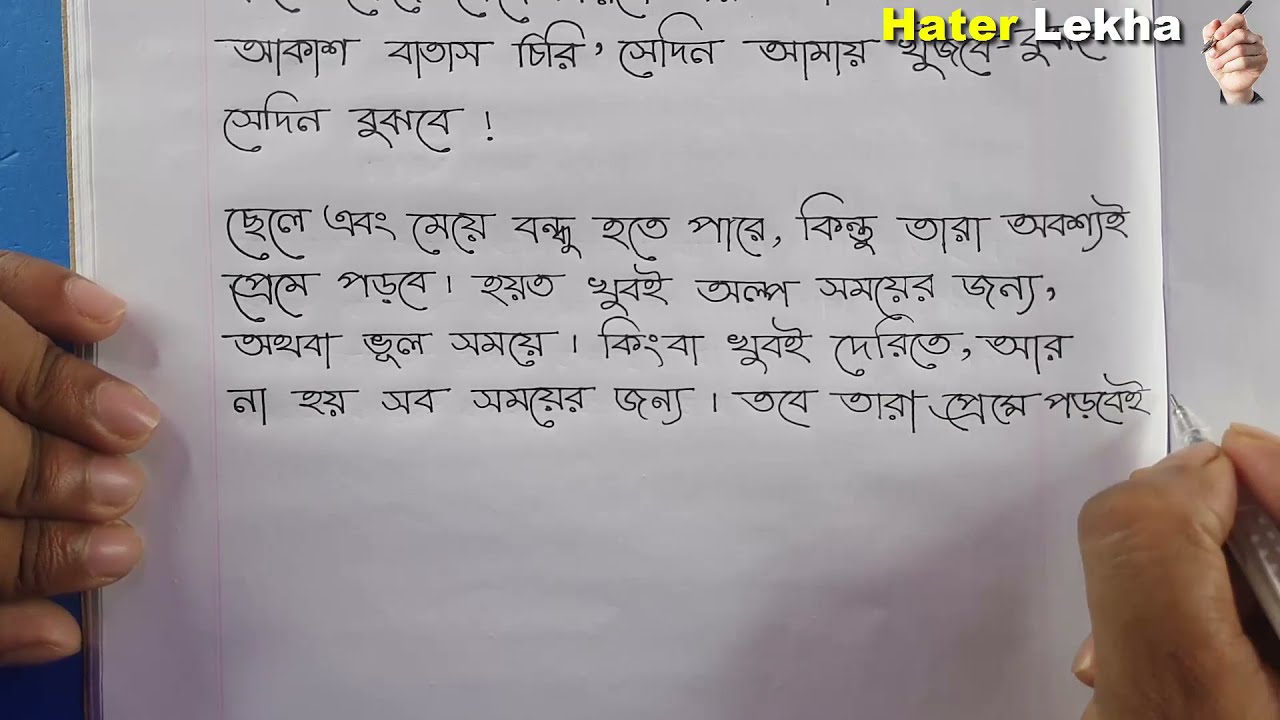 Hater Lekha
আকাশ বাতাস চিরি, সেদিন আমায় খুঁজবে-
সেদিন বুঝবে !
ছেলে এবং মেয়ে বন্ধু হতে পারে, কিন্তু তারা অবশ্যই
প্রেমে পড়বে। হয়ত খুবই অল্প সময়ের জন্য,
অথবা ভূল সময়ে। কিংবা খুবই দেরিতে, আর
না হয় সব সময়ের জন্য। তবে তারা প্রেমে পড়বেই